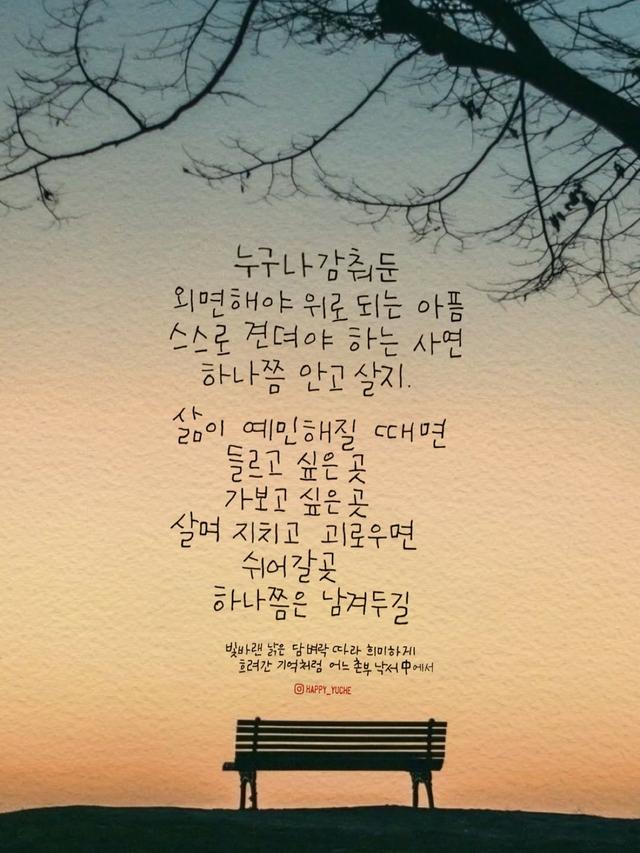 누구나 감춰둔
외면해야 위로 되는 아픔
스스로 견뎌야 하는 사연
하나쯤 안고 살지.
삶이 예민해질 때면
들르고 싶은 곳
가보고 싶은 곳
살며 지치고 괴로우면
쉬어갈 곳
하나쯤은 남겨두길
빛바랜 낡은 담벼락 따라 희미하게
흐려간 기억처럼 어느 촌부 낙서 中에서
HAPPY_YUCHE